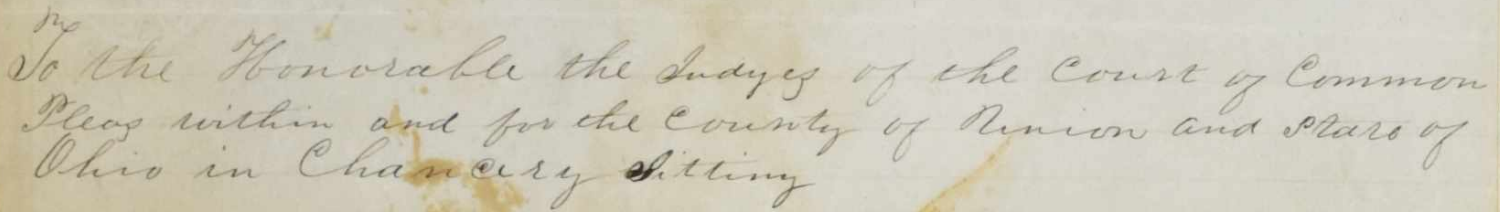 To the Honorable the Judges of the Court of Common
Pleas within and for the County of Union and State of
Ohio in Chancery Sitting